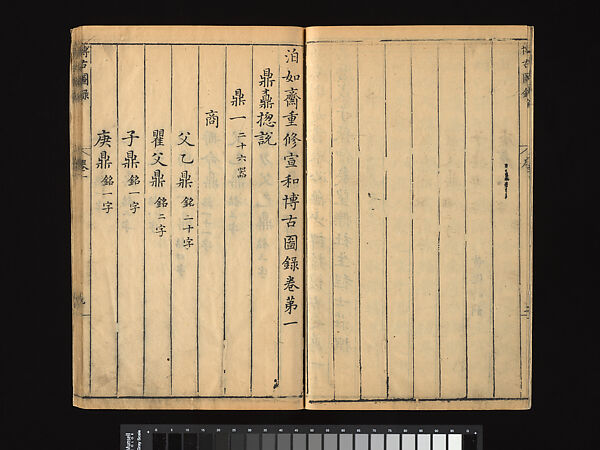 泊如齋重修宣和博古圖錄卷第一
鼎鼒揔說
鼎一 二十六器
商
父乙鼎 銘二十字
瞿父鼎 銘二字
子鼎 銘一字
庚鼎 銘一字
博古圖錄
卷一